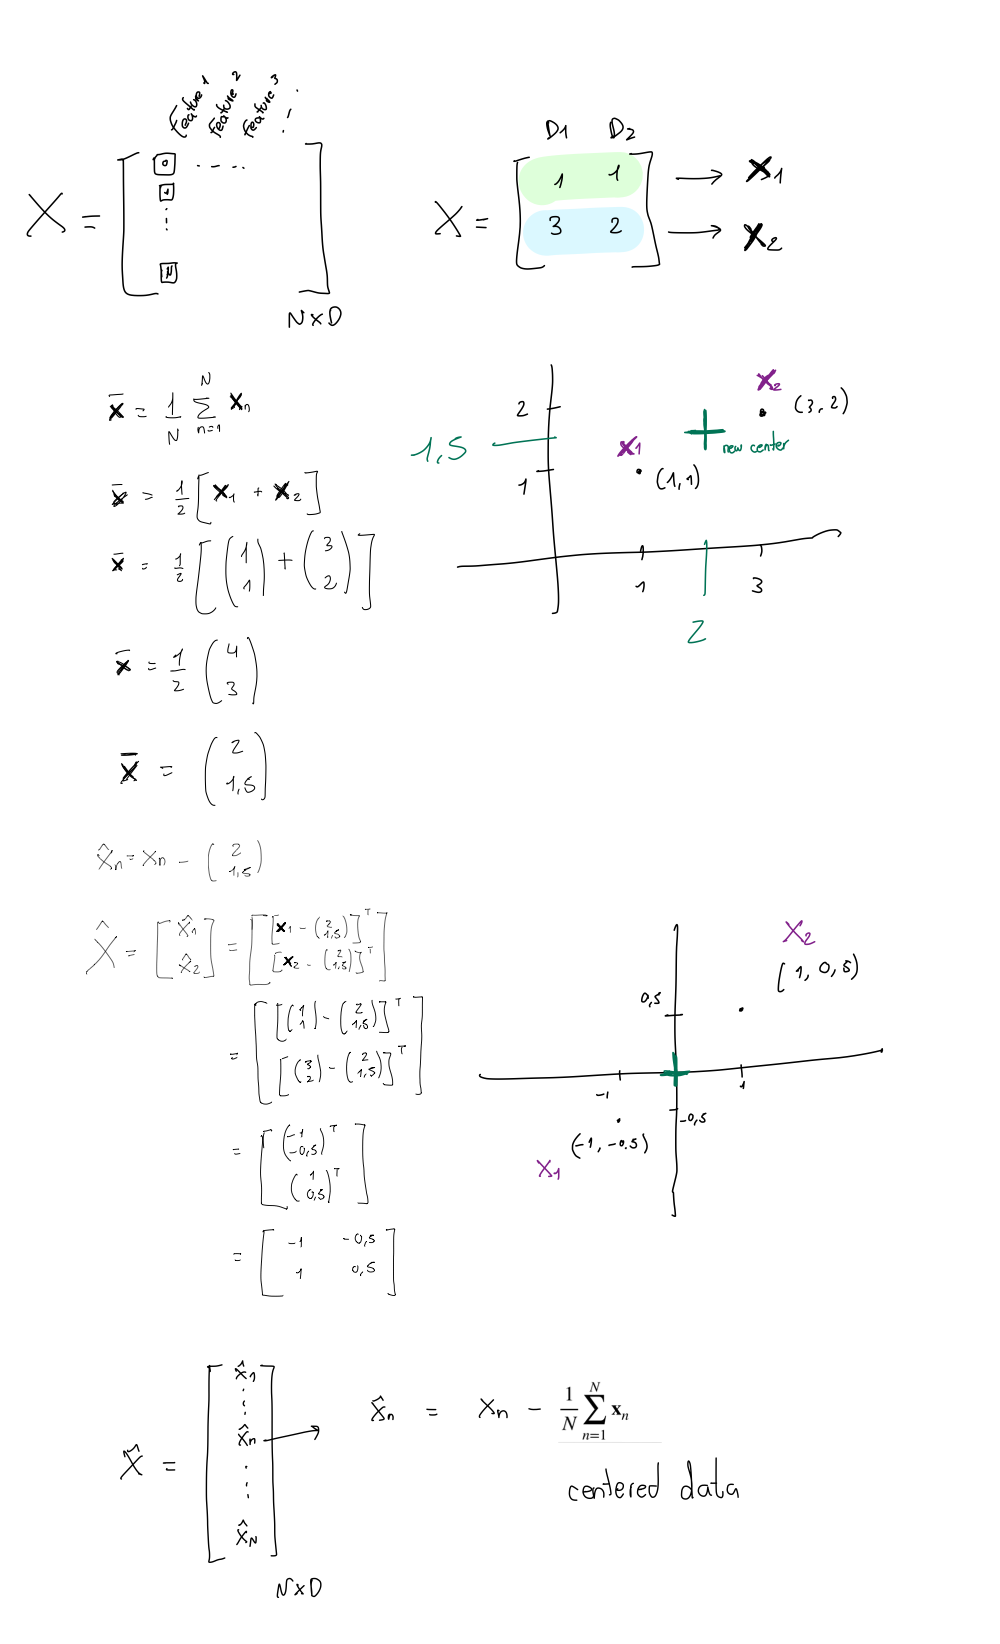 Feature 1 Feature 2 Feature 3 ...
X = [ 0 ....
1
⋮
N ] NxD
D1 D2
X = [ 1 1 → x1
3 2 ] → x2
x̄ = 1/N Σ_{n=1}^{N} xn
x̄ = 1/2 [ x1 + x2 ]
x̄ = 1/2 [ (1 1) + (3 2) ]
x̄ = 1/2 (4 3)
x̄ = (2 1,5)
2
1,5
1
x1
(1,1)
x2
(3,2)
new center
1
3
2
x̂n = xn - (2 1,5)
X̂ = [ x̂1 x̂2 ] = [ [x1 - (2 1,5)]ᵀ [x2 - (2 1,5)]ᵀ ]
= [ [(1 1) - (2 1,5)]ᵀ [(3 2) - (2 1,5)]ᵀ ]
= [ (-1 -0,5)ᵀ (1 0,5)ᵀ ]
= [ -1 -0,5
1 0,5 ]
x2
(1, 0,5)
0,5
-1
1
-0,5
(-1, -0.5)
x1
X̂ = [ x̂1 ⋮ x̂n ⋮ x̂N ] NxD
→ x̂n = xn - 1/N Σ_{n=1}^{N} xn
centered data